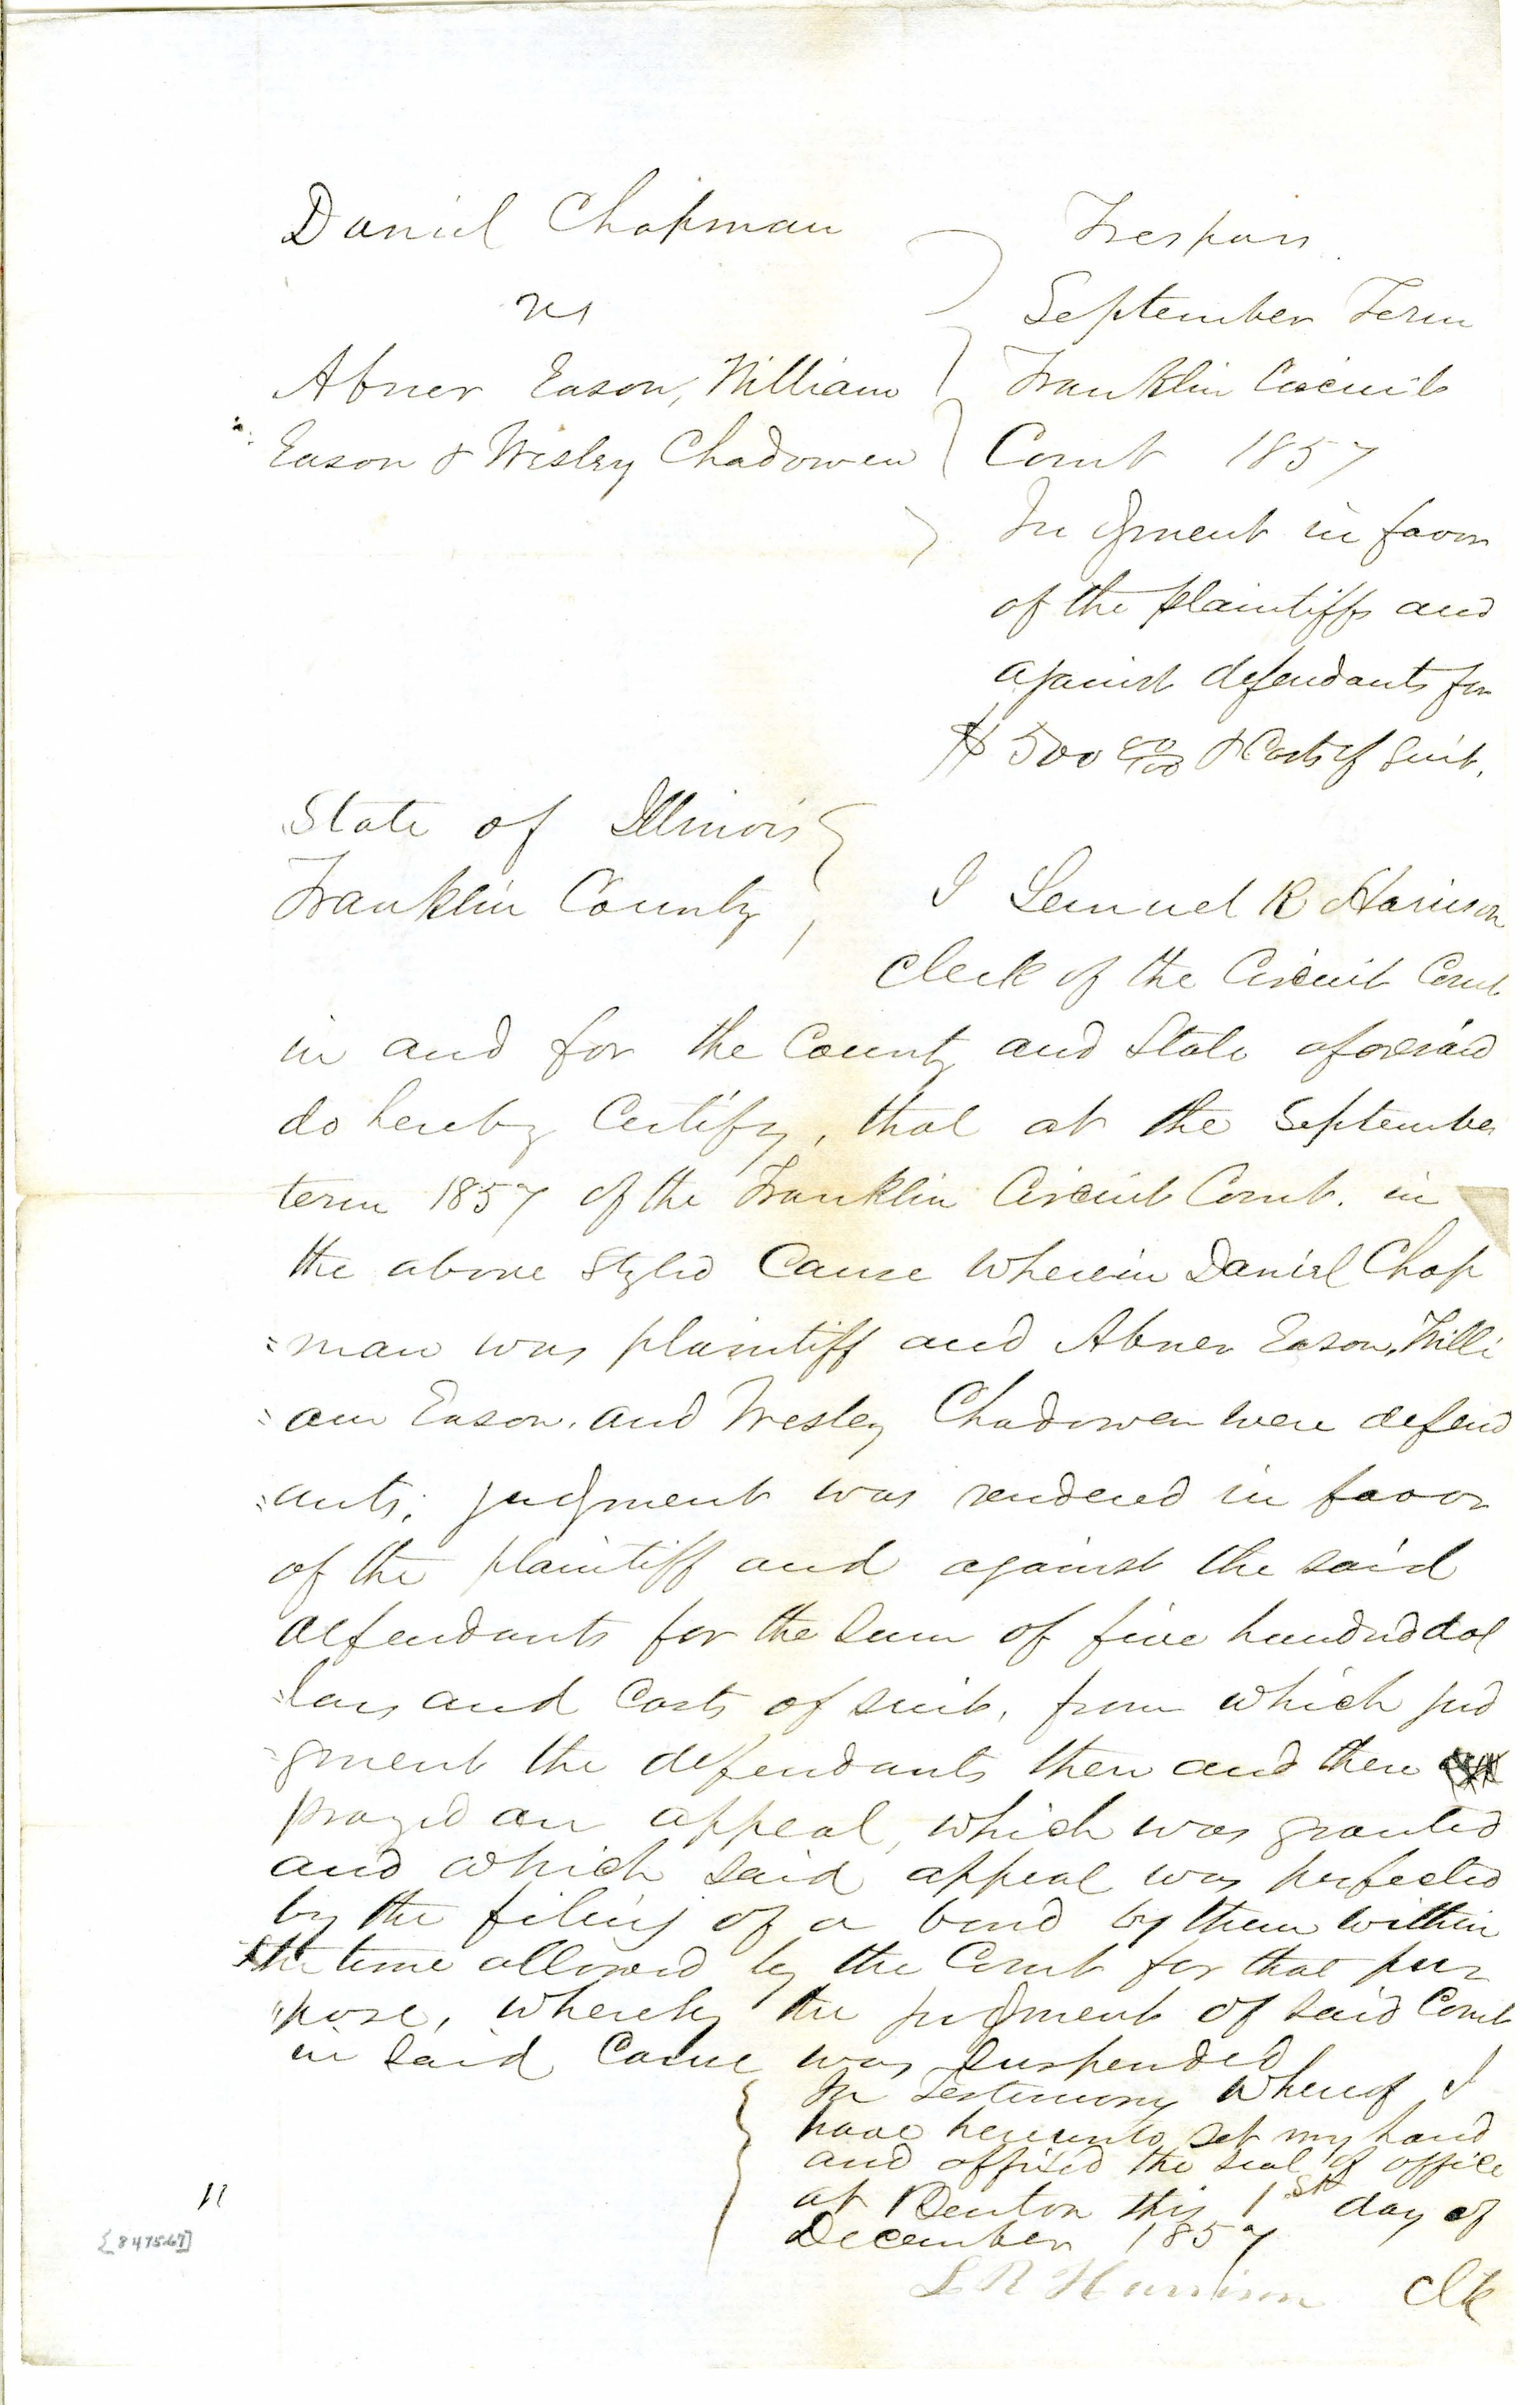 Daniel Chapman
vs
Abner Eason, William
Eason & Wesley Chadowen
Trespass
September Term
Franklin Circuit
Court 1857
Judgment in favor
of the plaintiffs and
against defendants for
$500 00/100 & Costs of Suit.
State of Illinois
Franklin County
I Lemuel R Harrison
Clerk of the Circuit Court
in and for the County and State aforesaid
do hereby Certify, that at the September
term 1857 of the Franklin Circuit Court. in
the above Styled Cause wherein Daniel Chap
=man was plaintiff and Abner Eason, Willi
=am Eason, and Wesley Chadowen were defend
=ants; judgment was rendered in favor
of the plaintiff and against the said
defendants for the sum of five hundred dol
=lars and Costs of suit, from which jud
=gment the defendants then and there
prayed an appeal, which was granted
and which said appeal was perfected
by the filing of a bond by them within
the time allowed by the Court for that pur
"pose, whereby the judgment of said Court
in said Cause was suspended
In Testimony whereof I
have hereunto set my hand
and affixed the seal of office
at Benton this 1st day of
December 1857
L R Harrison Clk
11
[847567]